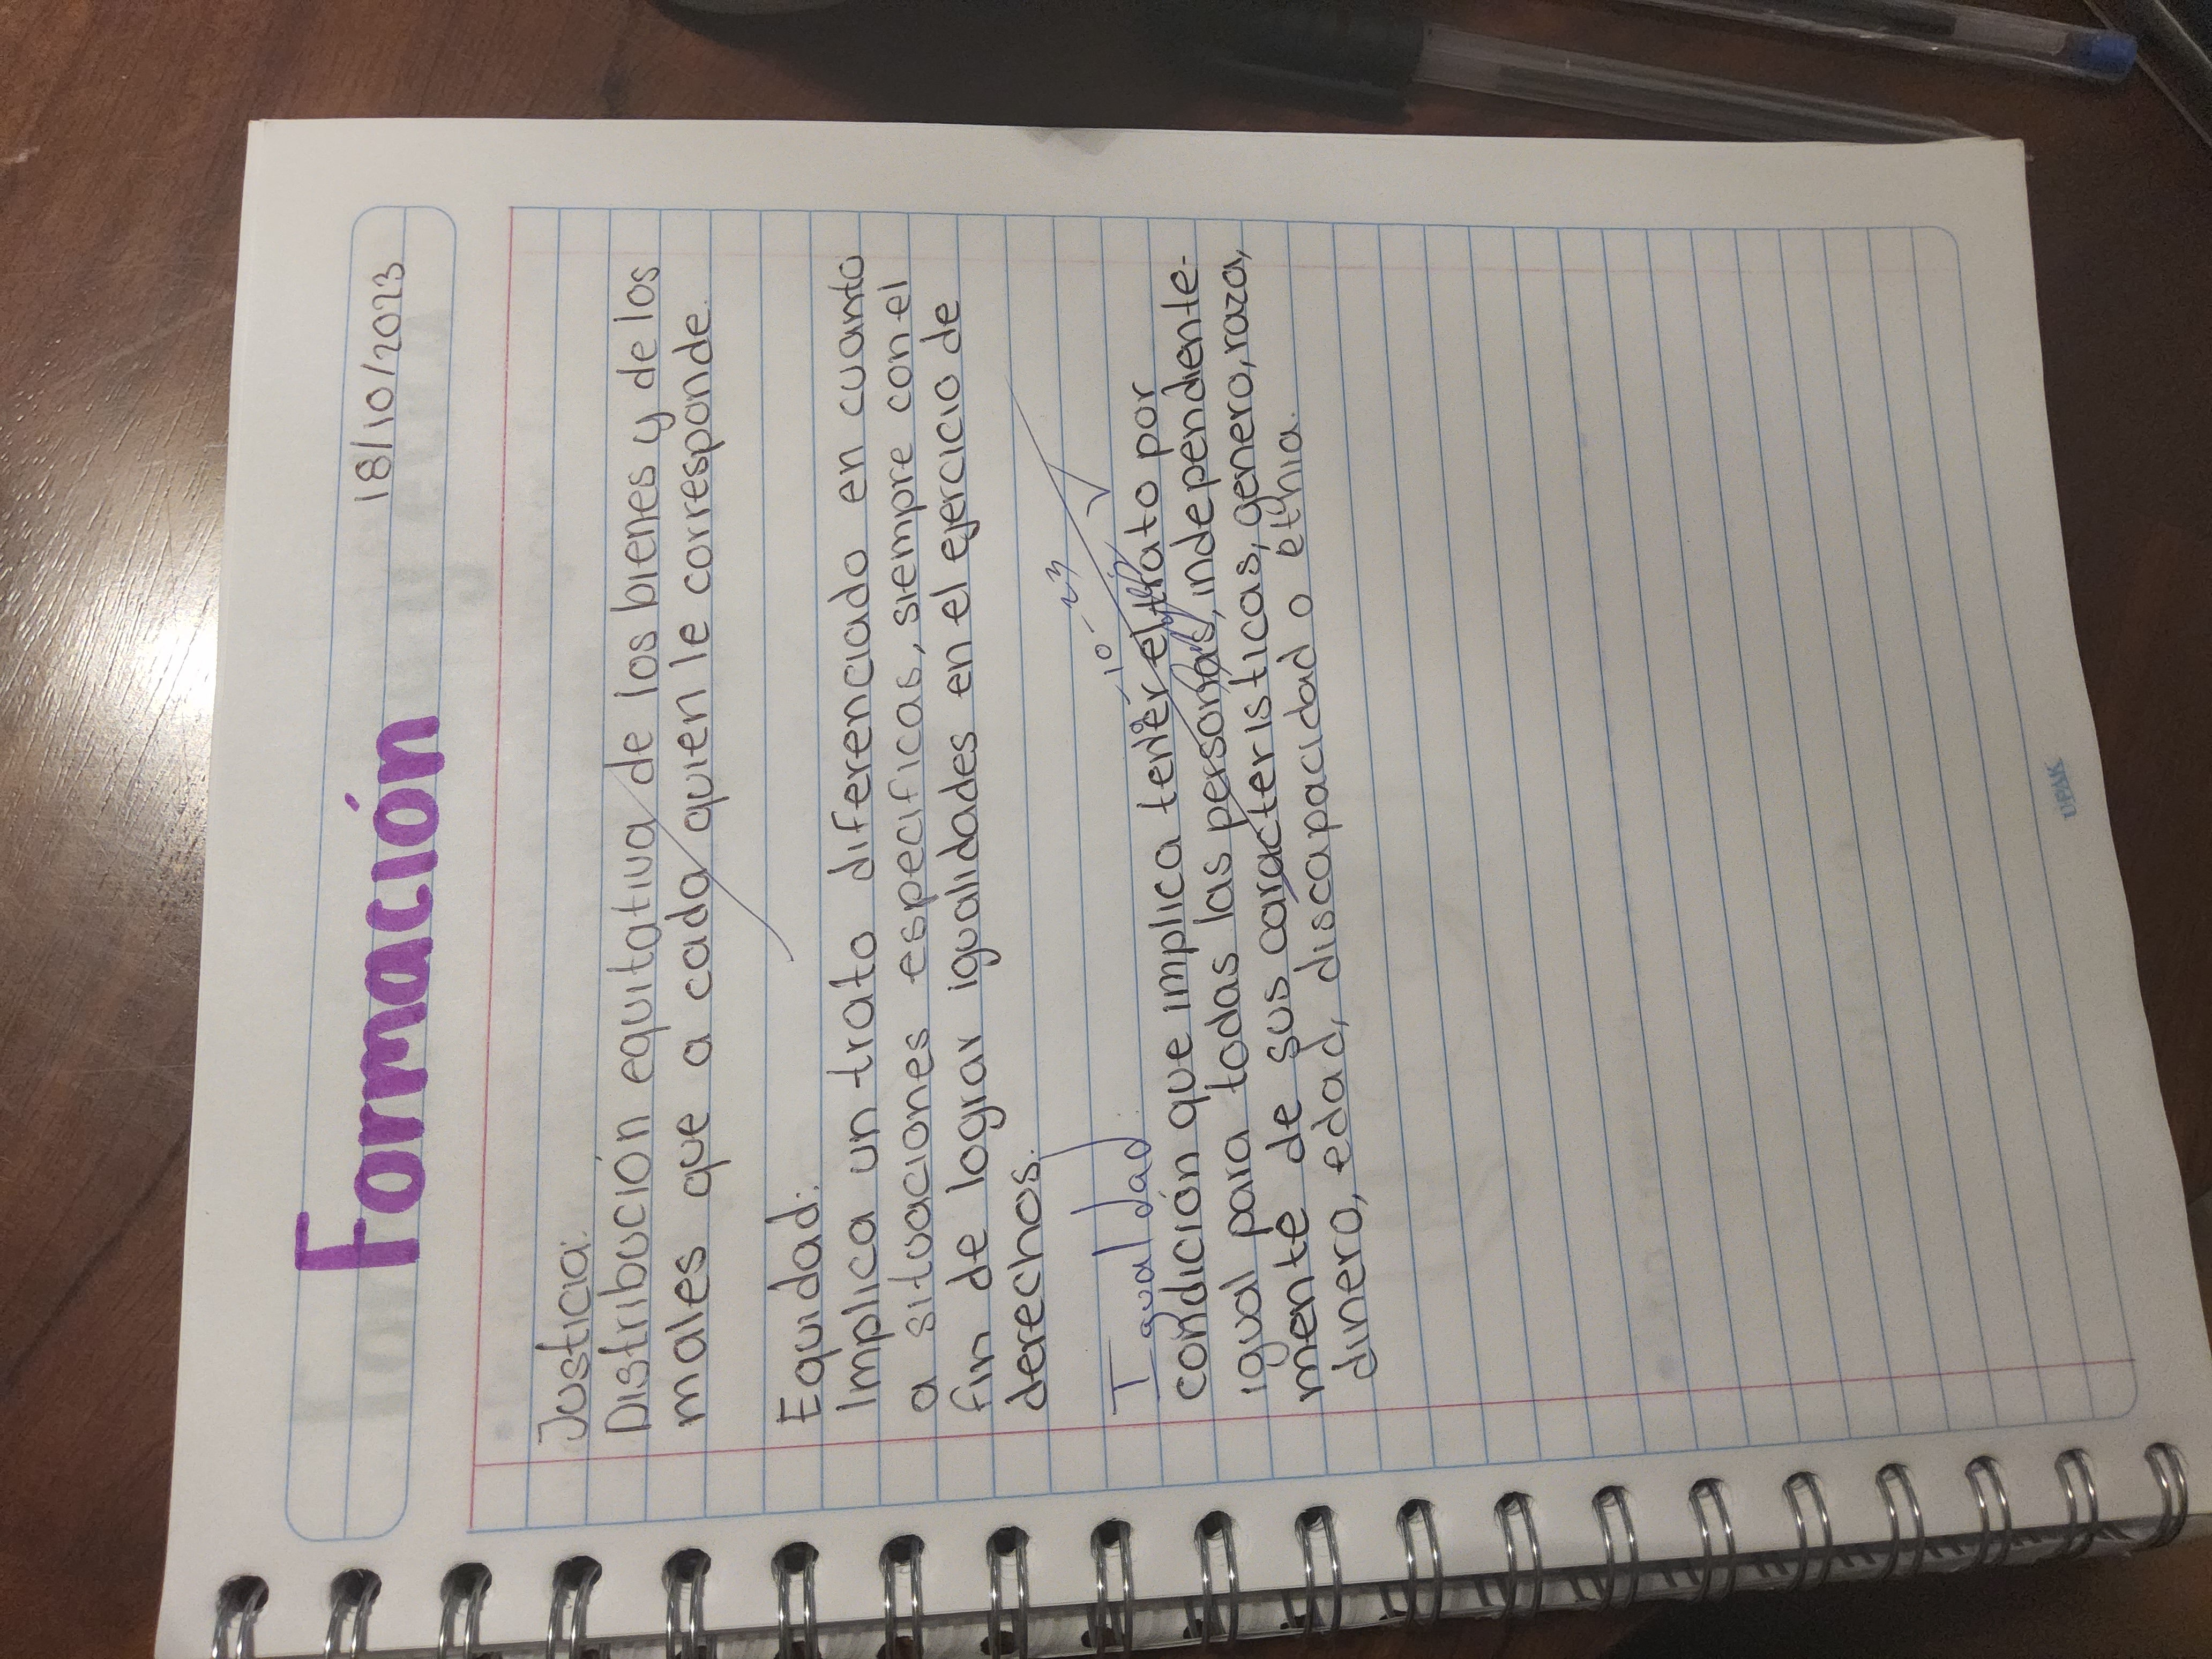 Formación
18/10/2023
Justicia:
Distribución equitativa de los bienes y de los
males que a cada quien le corresponde.
Equidad:
Implica un trato diferenciado en cuanto
a situaciones especificas, siempre con el
fin de lograr igualidades en el ejercicio de
derechos.
-10-23
Igualdad:
condición que implica tener el trato por
igual para todas las personas, independiente-
mente de sus caracteristicas, genero, raza,
dinero, edad, discapacidad o ethia.
UPAK